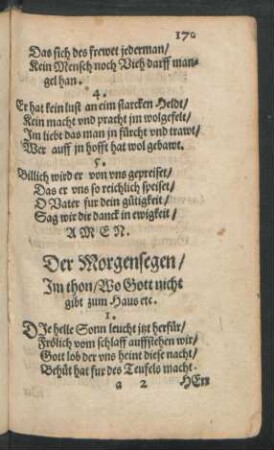 170
Das sich des frewet jederman/
Kein Mensch noch Vieh darff man-
gel han.
4.
Er hat kein lust an eim starcken Heldt/
Kein macht vnd pracht jm wolgefelt/
Jm liebt das man jn fürcht vnd trawt/
Wer auff jn hofft hat wol gebawt.
5.
Billich wird er von vns gepreiset/
Das er vns so reichlich speiset/
O Vater fur dein gütigkeit/
Sag wir dir danck in ewigkeit/
AMEN.
Der Morgensegen/
Im thon/Wo Gott nicht
gibt zum Haus etc.
1.
DJe helle Sonn leucht jtzt herfür/
Frölich vom schlaff auffstehen wir/
Gott lob der vns heint diese nacht/
Behüt hat fur des Teufels macht.
a 2 HErr